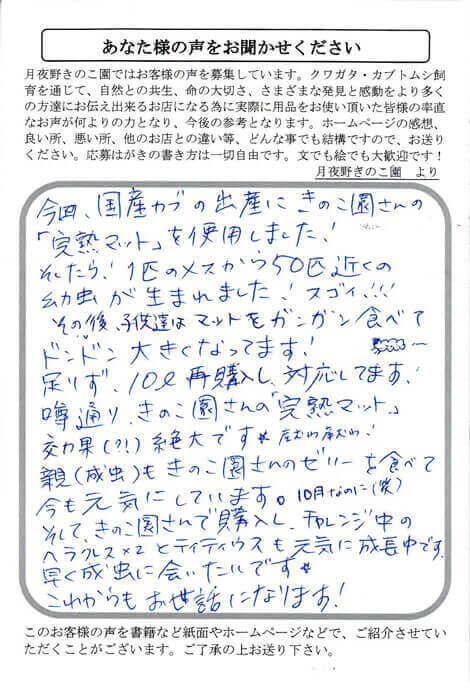 あなた様の声をお聞かせください
月夜野きのこ園ではお客様の声を募集しています。クワガタ・カブトムシ飼
育を通じて、自然との共生、命の大切さ、さまざまな発見と感動をより多く
の方達にお伝え出来るお店になる為に実際に用品をお使い頂いた皆様の率直
なお声が何よりの力となり、今後の参考となります。ホームページの感想、
良い所、悪い所、他のお店との違い等、どんな事でも結構ですので、お送り
ください。応募はがきの書き方は一切自由です。文でも絵でも大歓迎です！
月夜野きのこ園　より
今回、国産カブの出産に きのこ園さんの
「完熟マット」を使用しました！
そしたら！ 1匹のメスから50匹近くの
幼虫が生まれました！ スゴイ！！！
その後、子供達は マットをガンガン食べて
ドンドン大きくなってます！
足りず、10ℓ再購入し、対応してます！
噂通り、きのこ園さんの「完熟マット」
効果(?!)絶大です☆
親(成虫)もきのこ園さんのゼリーを食べて
今も元気にしています。10月なのに(笑)
そして、きのこ園さんで購入し、チャレンジ中の
ヘラクレス×2 とティティウスも元気に成長中です。
早く成虫に会いたいです☆
これからも お世話になります！
このお客様の声を書籍など紙面やホームページなどで、ご紹介させてい
ただくことがございます。ご了承の上お送り下さい。